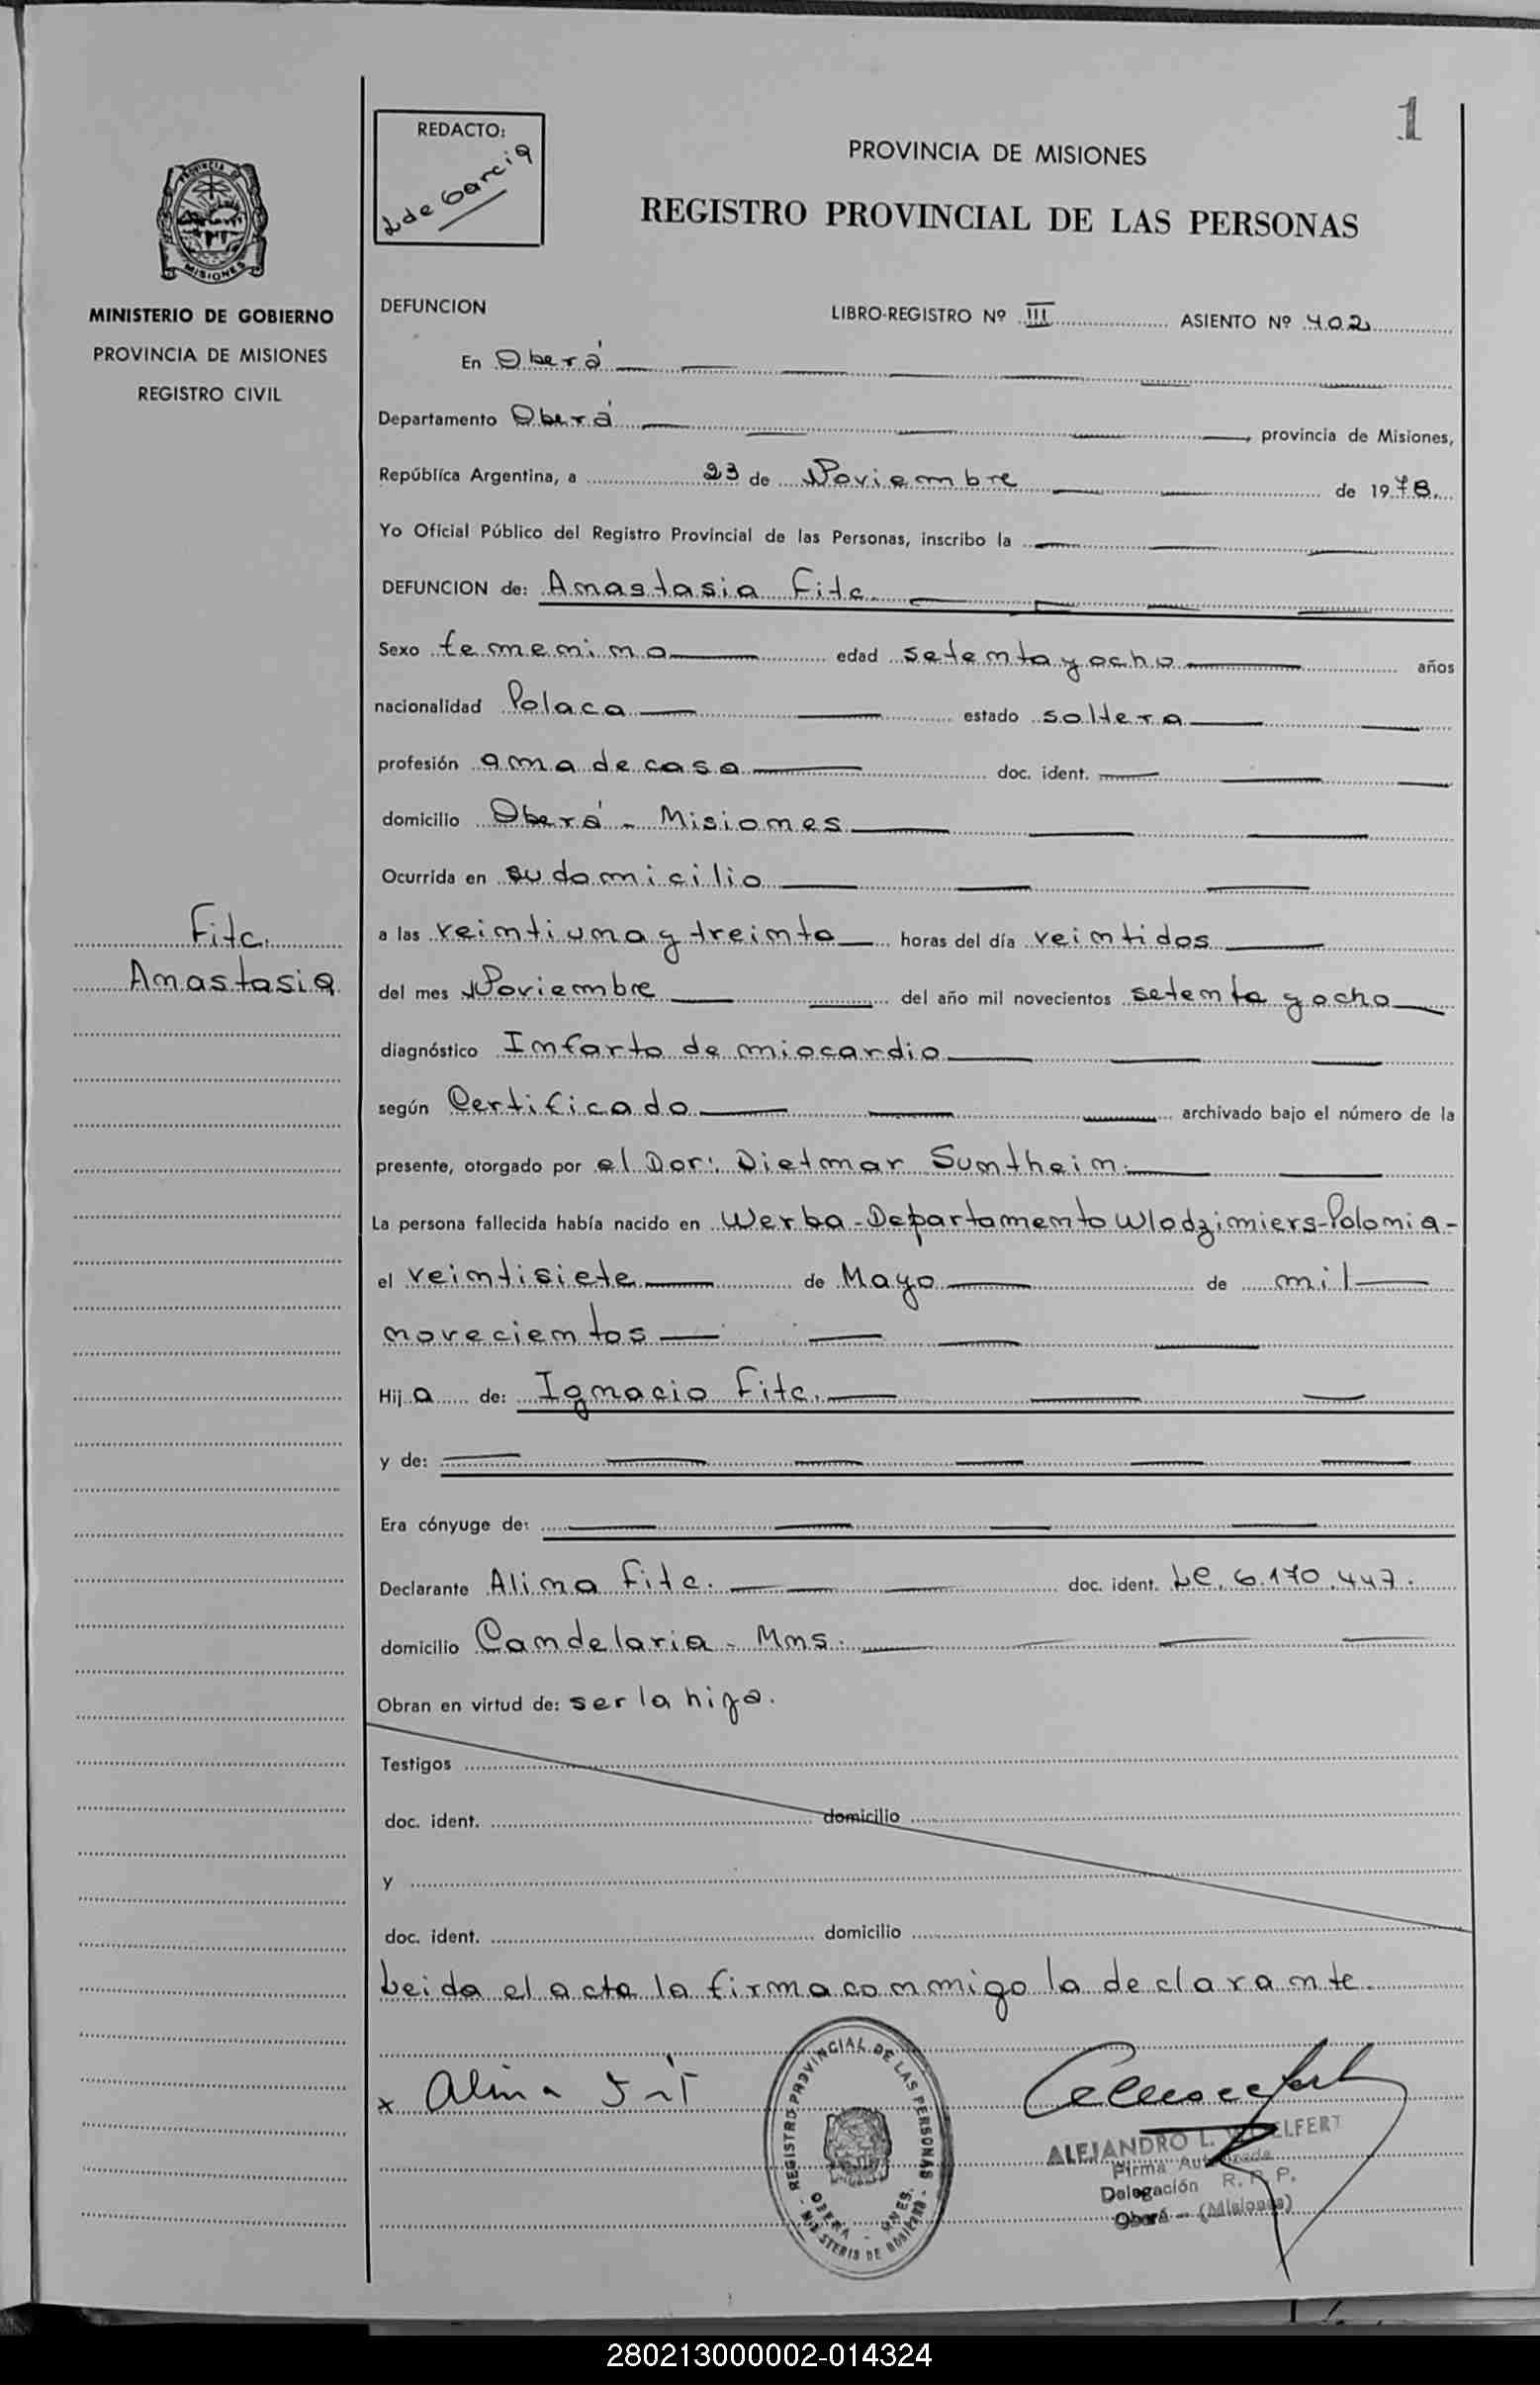 1
REDACTO:
L de Garcia
PROVINCIA DE MISIONES
REGISTRO PROVINCIAL DE LAS PERSONAS
MISIONES
MINISTERIO DE GOBIERNO
PROVINCIA DE MISIONES
REGISTRO CIVIL
DEFUNCION LIBRO-REGISTRO Nº III ASIENTO Nº 402
En Oberá
Departamento Oberá, provincia de Misiones,
República Argentina, a 23 de Noviembre de 1978.
Yo Oficial Público del Registro Provincial de las Personas, inscribo la
DEFUNCION de: Anastasia Fitc.
Sexo femenino edad setenta y ocho años
nacionalidad Polaca estado soltera
profesión ama de casa doc. ident.
domicilio Oberá - Misiones
Ocurrida en su domicilio
Fitc.
Anastasia
a las veintiuna y treinta horas del día veintidos
del mes Noviembre del año mil novecientos setenta y ocho
diagnóstico Infarto de miocardio
según Certificado archivado bajo el número de la
presente, otorgado por el Dor: Dietmar Suntheim.
La persona fallecida había nacido en Werba-Departamento Wlodzimiers-Polonia-
el veintisiete de Mayo de mil
novecientos
Hija de: Ignacio Fitc.
y de:
Era cónyuge de:
Declarante Alina Fitc. doc. ident. LC. 6.170.447.
domicilio Candelaria - Mns.
Obran en virtud de: ser la hija.
Testigos
doc. ident. domicilio
y
doc. ident. domicilio
Leida el acta la firma conmigo la declarante.
x Alina
REGISTRO PROVINCIAL DE LAS PERSONAS
OBERA - MNES.
ALEJANDRO L.
Firma Autorizada
Delegación R. P. P.
Oberá - (Misiones)
280213000002-014324